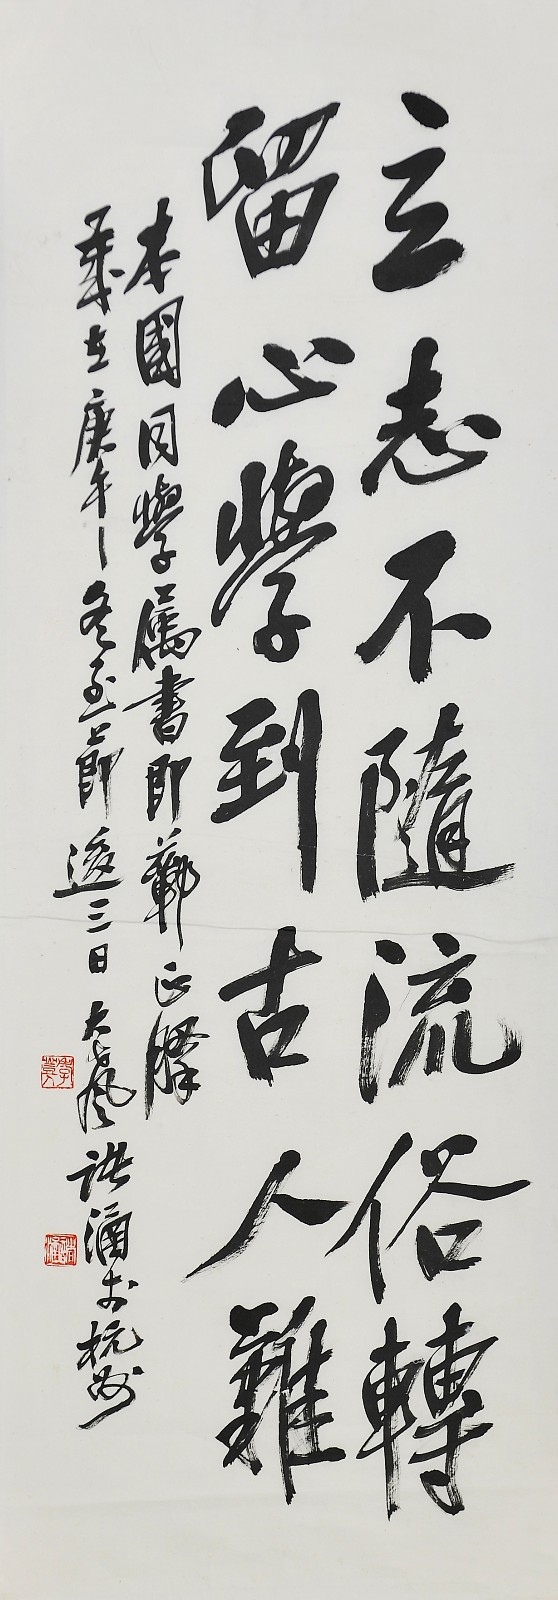 立志不隨流俗轉
留心學到古人難
本國同學屬書即蘄正
歲在庚午冬至節後三日大風諸涵於杭州